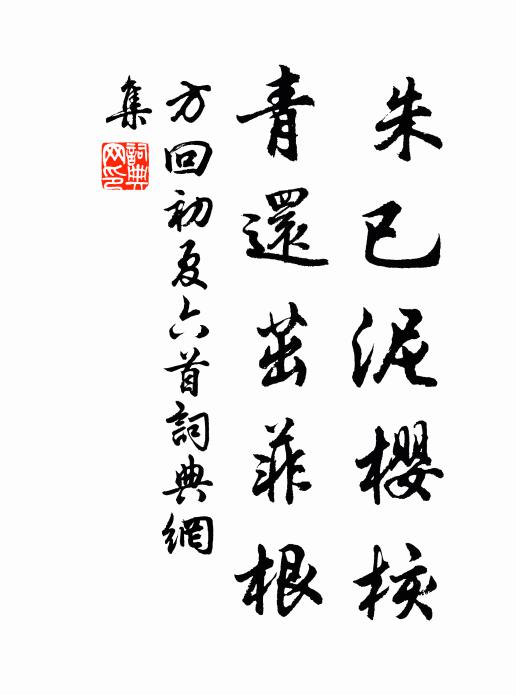 朱已泥櫻核
青還茁菲根
方回初夏六首詞典網
集
詞典
网印